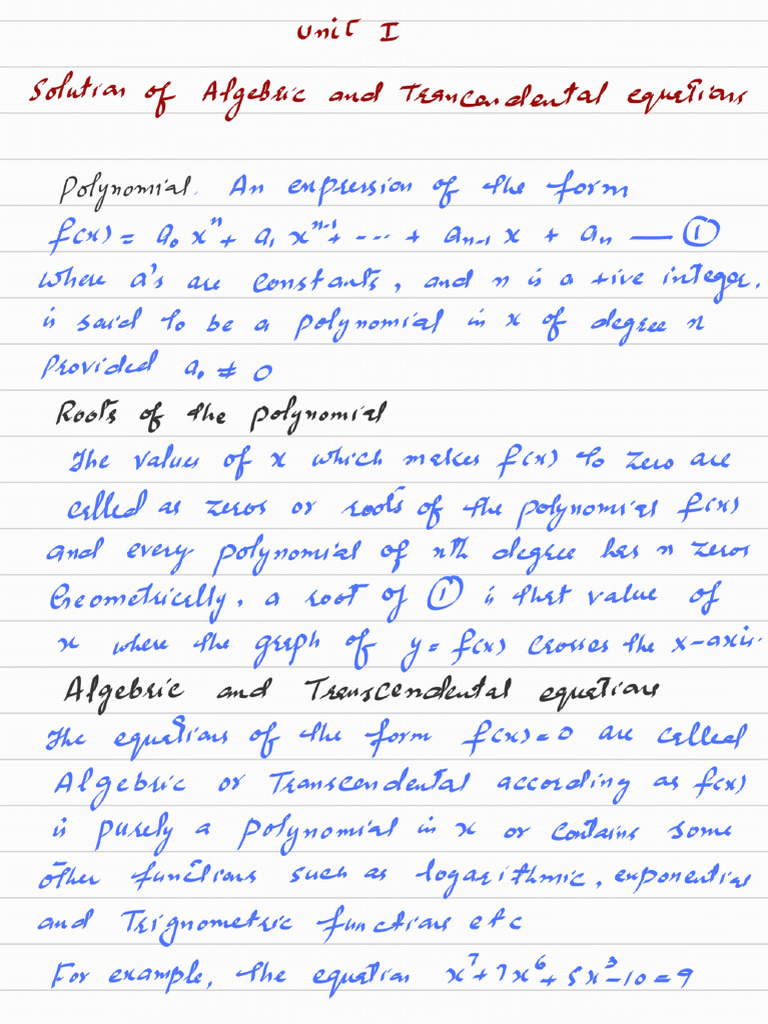 Unit I
Solution of Algebric and Trancendental equations
Polynomial. An expression of the form
f(x) = a₀ xⁿ + a₁ xⁿ⁻¹ + --- + aₙ₋₁ x + aₙ — ①
where a's are constants, and n is a +ive integer.
is said to be a polynomial in x of degree n
Provided a₀ ≠ 0
Roots of the polynomial
The values of x which makes f(x) to zero are
called as zeros or roots of the polynomial f(x)
and every polynomial of nth degree has n zeros
Geometrically, a root of ① is that value of
x where the graph of y = f(x) crosses the x-axis.
Algebric and Transcendental equations
The equations of the form f(x)=0 are called
Algebric or Transcendental according as f(x)
is purely a polynomial in x or contains some
other functions such as logarithmic, exponential
and Trignometric functions etc
For example, the equation x⁷+7x⁶+5x³-10=9